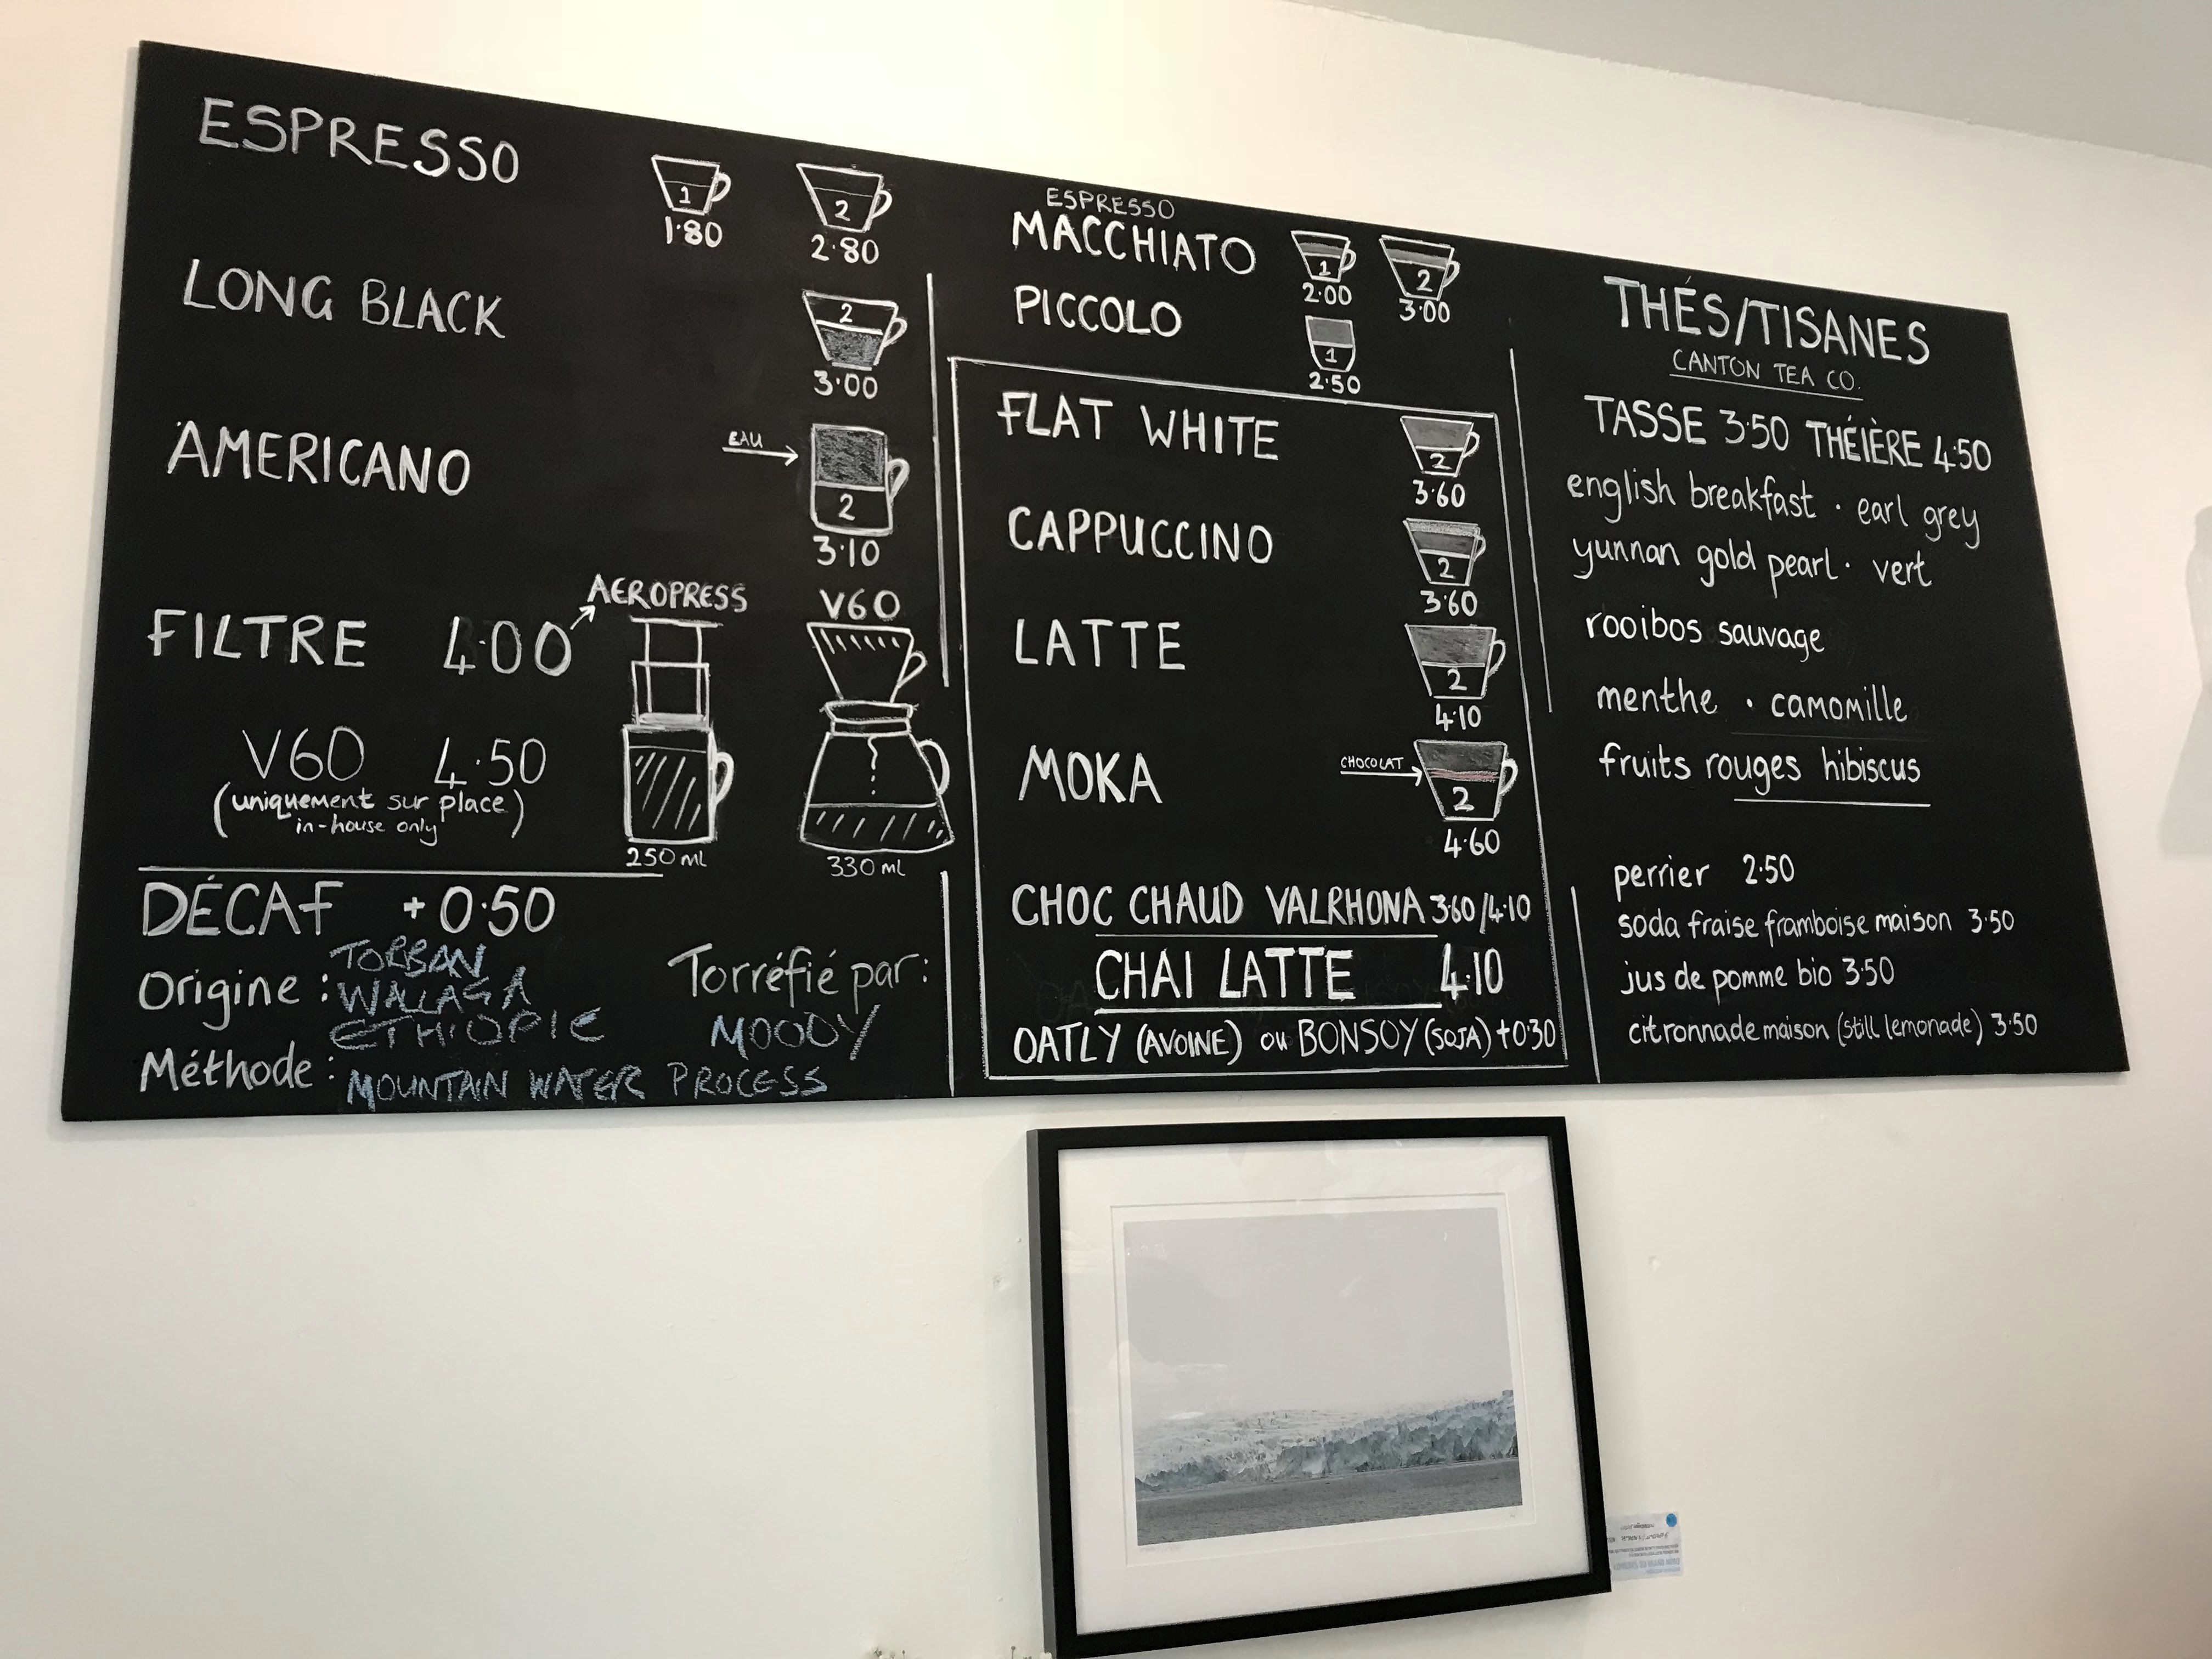 ESPRESSO
1 2
1·80 2·80
LONG BLACK
2
3·00
AMERICANO
EAU
2
3·10
FILTRE 4·00
AEROPRESS V60
V60 4·50
(uniquement sur place)
in-house only
250 ml 330 ml
DÉCAF +0·50
Origine : TORBAN
WALLAGA
ETHIOPIE
Torréfié par :
MOODY
Méthode : MOUNTAIN WATER PROCESS
ESPRESSO
MACCHIATO
1 2
2·00 3·00
PICCOLO
1
2·50
FLAT WHITE
2
3·60
CAPPUCCINO
2
3·60
LATTE
2
4·10
MOKA
CHOCOLAT
2
4·60
CHOC CHAUD VALRHONA 3·60/4·10
CHAI LATTE 4·10
OATLY (AVOINE) ou BONSOY (SOJA) +0·30
THÉS/TISANES
CANTON TEA CO.
TASSE 3·50 THÉIÈRE 4·50
english breakfast · earl grey
yunnan gold pearl · vert
rooibos sauvage
menthe · camomille
fruits rouges hibiscus
perrier 2·50
soda fraise framboise maison 3·50
jus de pomme bio 3·50
citronnade maison (still lemonade) 3·50